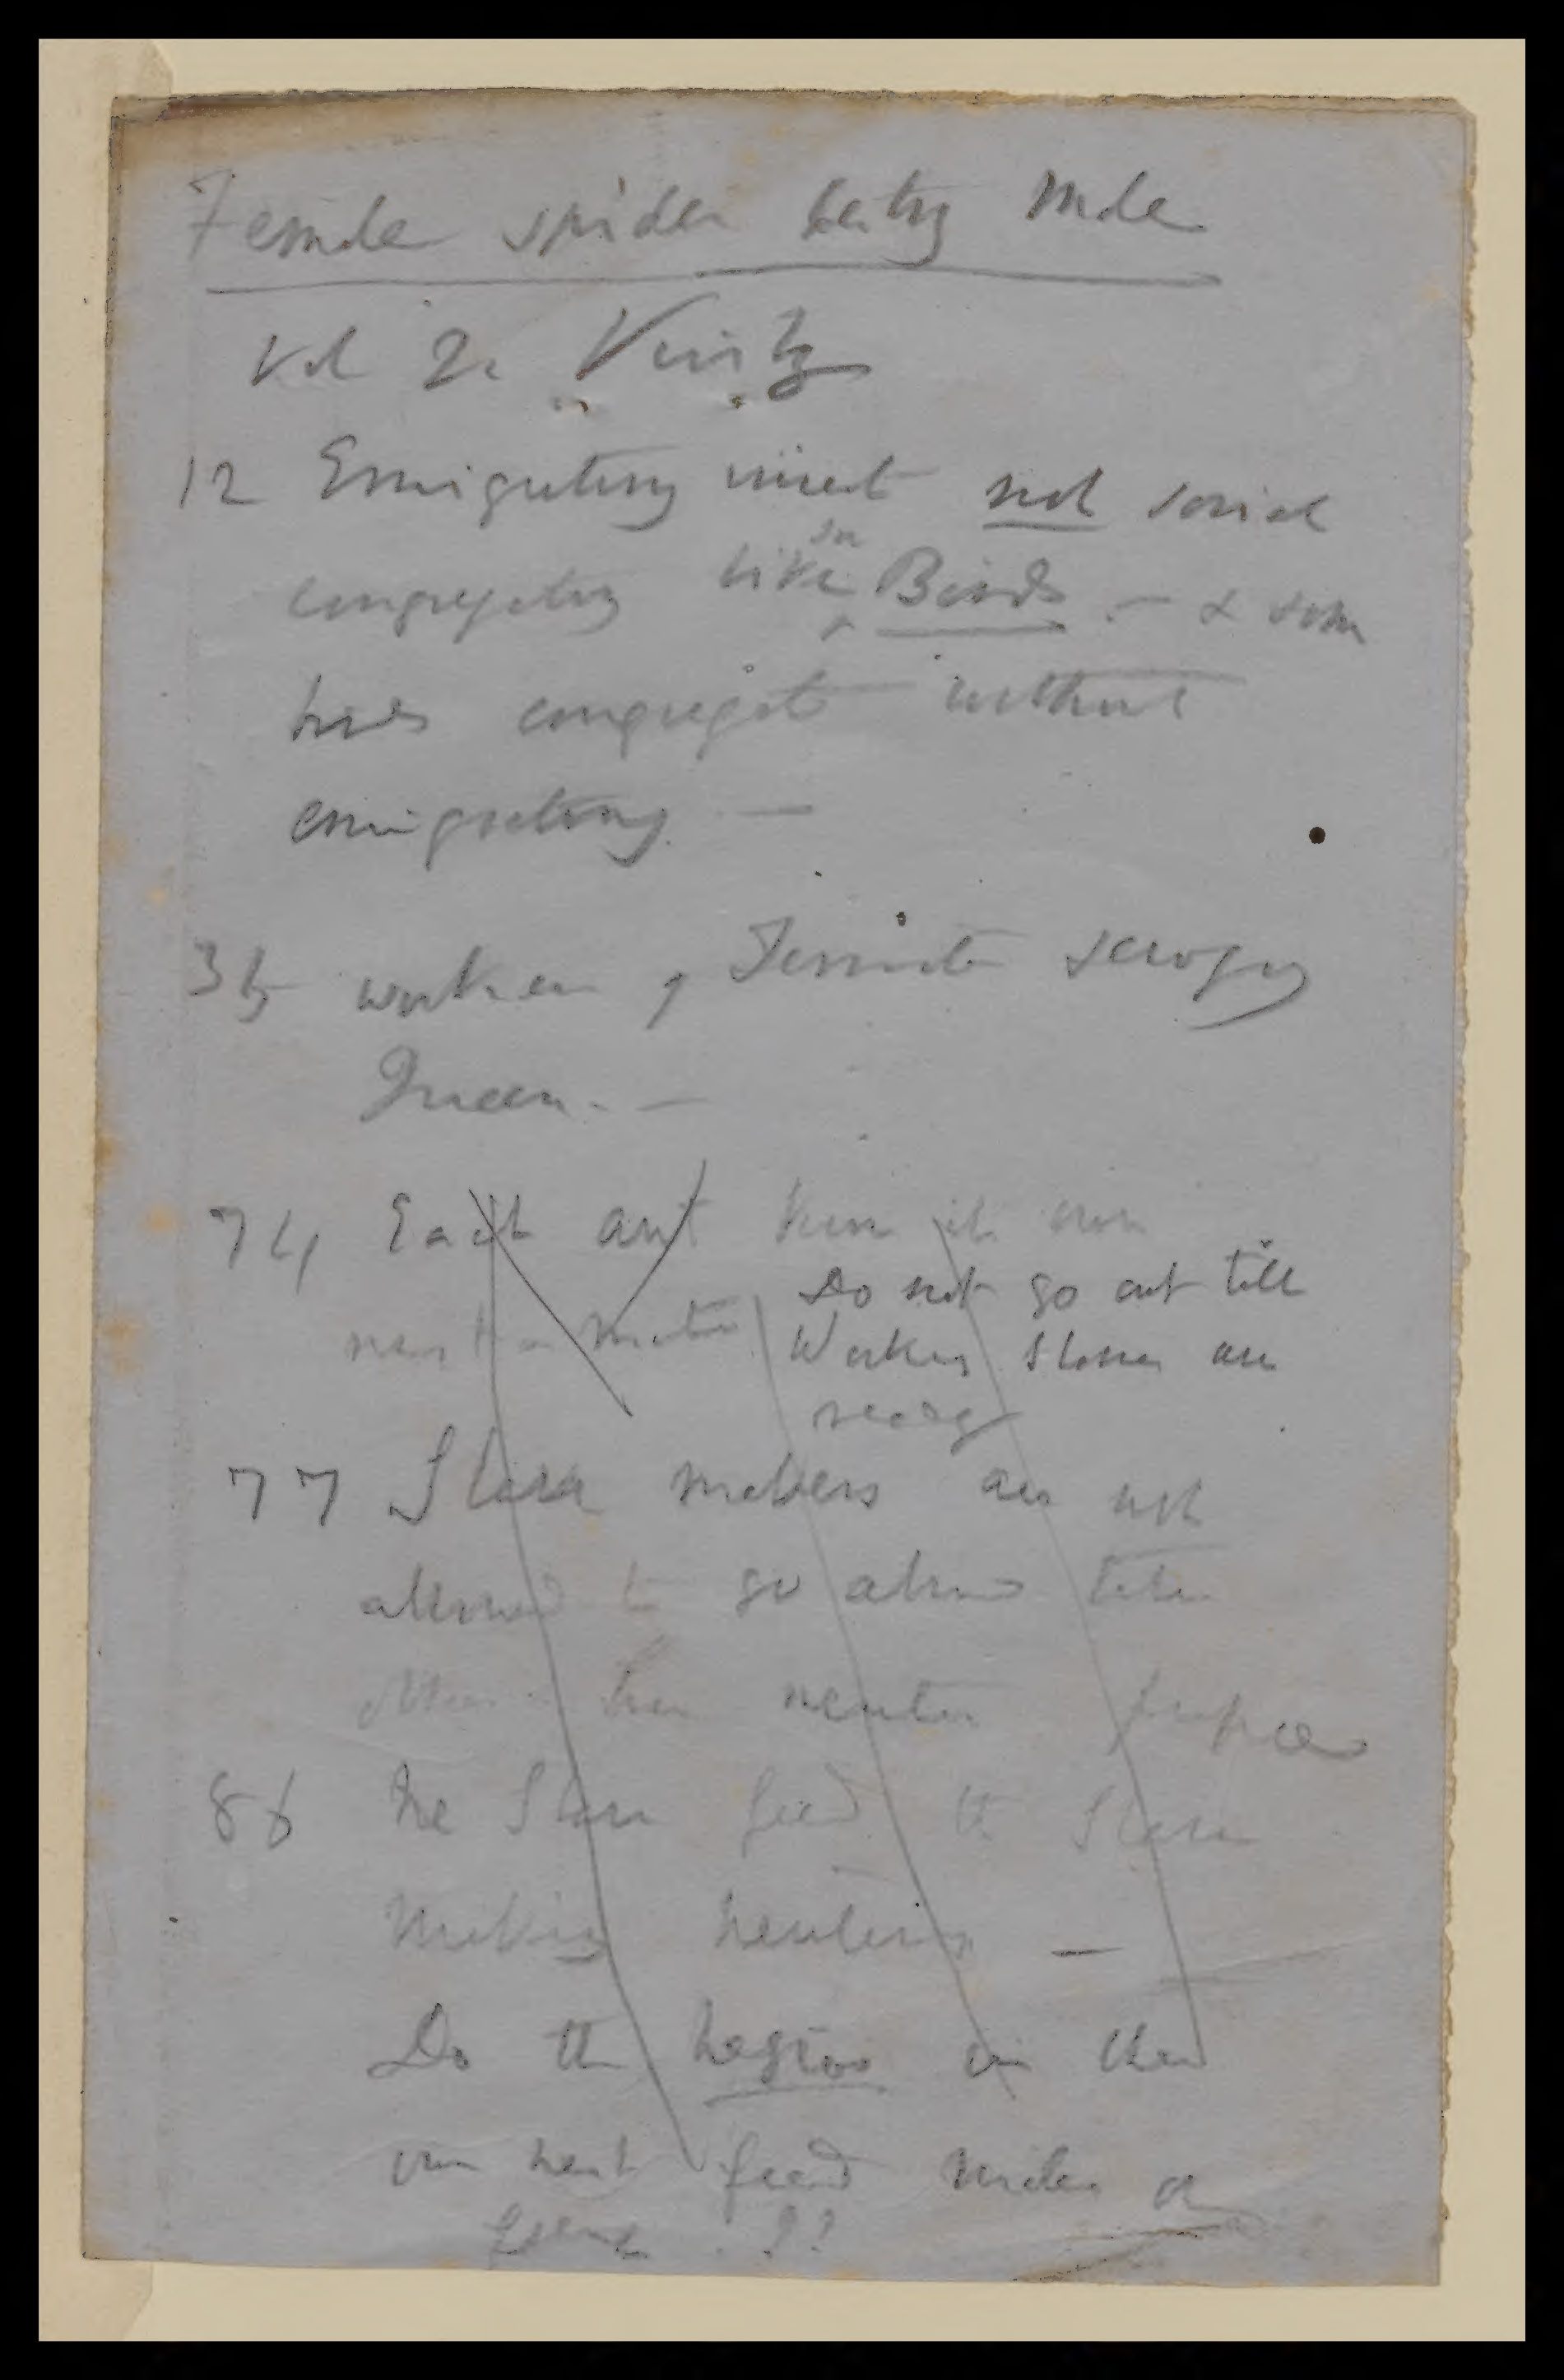 Female spider eating male
Vol 2.
12 Emigrating insect not social
congregating like in Birds. — & some
birds congregate without
emigrating —
35 workers of Termite
Queen. —
74 Each ant know its own
nest-mates Do not go out till
Workers Slaves are
ready
77 Slave makers are not
allowed to go abroad till
have neuter pupae
86 The Slaves feed the Slave
making neuters —
Do the negros in their
own nest feed males or
females ??